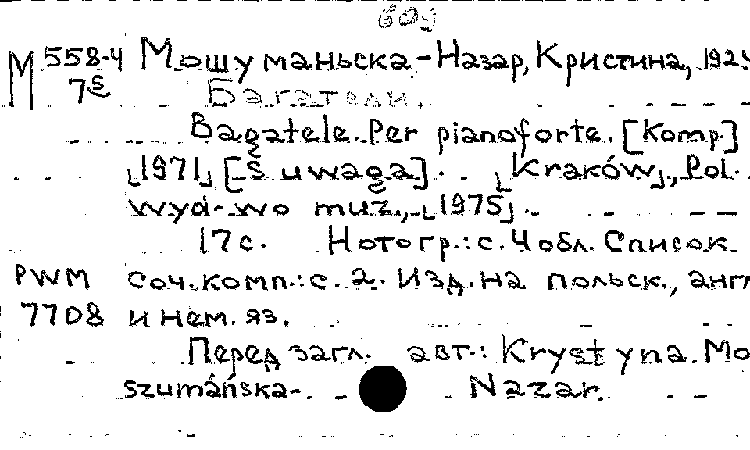 М 558-4 Мошуманьска-Назар, Кристина, 1924
7⁵ Багатели.
Bagatele. Per pianoforte. [Komp.]
[1971] [Ś uwaga]. [Kraków], Pol.
wyd-wo muz., [1975].
17 с. Нотогр.: с. 4 обл. Список
PWM соч. комп.: с. 2. Изд. на польск., англ
7708 и нем. яз.
Перед загл. авт.: Krystyna Mo
szumańska- Nazar.